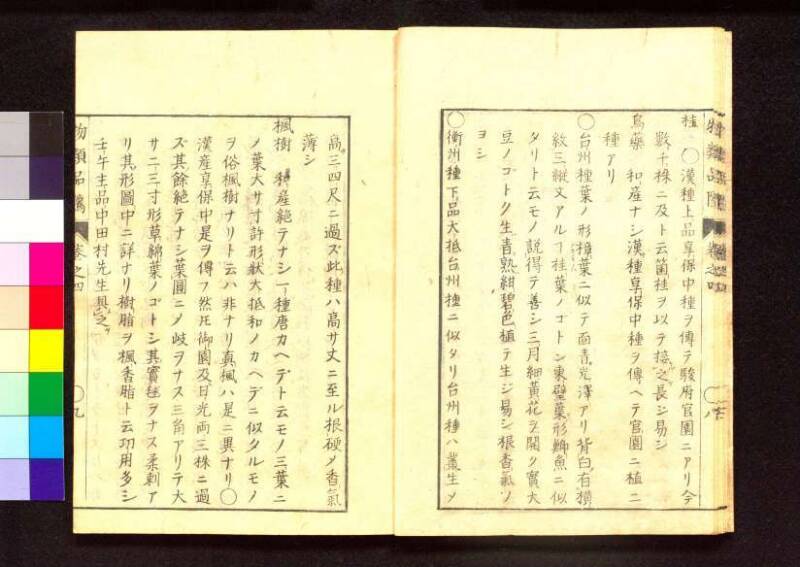 物類品隲 巻之四 ○八
植 ○漢種上品享保中種ヲ傳テ駿府官園ニアリ今
數十株ニ及ト云箇桂ヲ以テ接之長シ易シ
烏藥 和産ナシ漢種享保中種ヲ傳ヘテ官園ニ植ニ
種アリ
○台州種葉ノ形樟葉ニ似テ面青光澤アリ背白有横
紋三縦文アルヿ桂葉ノゴトシ東壁葉形鯽魚ニ似
タリト云モノ説得テ善シ三月細黄花ヲ開ク實大
豆ノゴトク生青熟紺碧色植テ生ジ易シ根香氣ツ
ヨシ
○衡州種下品大抵台州種ニ似タリ台州種ハ叢生メ
高三四尺ニ過ズ此種ハ高サ丈ニ至ル根硬メ香氣
薄シ
楓樹 和産絶テナシ一種唐カヘデト云モノ三葉ニ
ノ葉大サ寸許形狀大抵和ノカヘデニ似タルモノ
ヲ俗楓樹ナリト云ハ非ナリ真楓ハ是ニ異ナリ○
漢産享保中是ヲ傳フ然𪜈御園及日光両三株ニ過
ズ其餘絶テナシ葉圓ニメ岐ヲナス三角アリテ大
サ二三寸形草綿葉ノゴトシ其實毬ヲナス柔刺ア
リ其形圖中ニ詳ナリ樹脂ヲ楓香脂ト云功用多シ
壬午主品中田村先生具之
物類品隲 巻之四 ○九